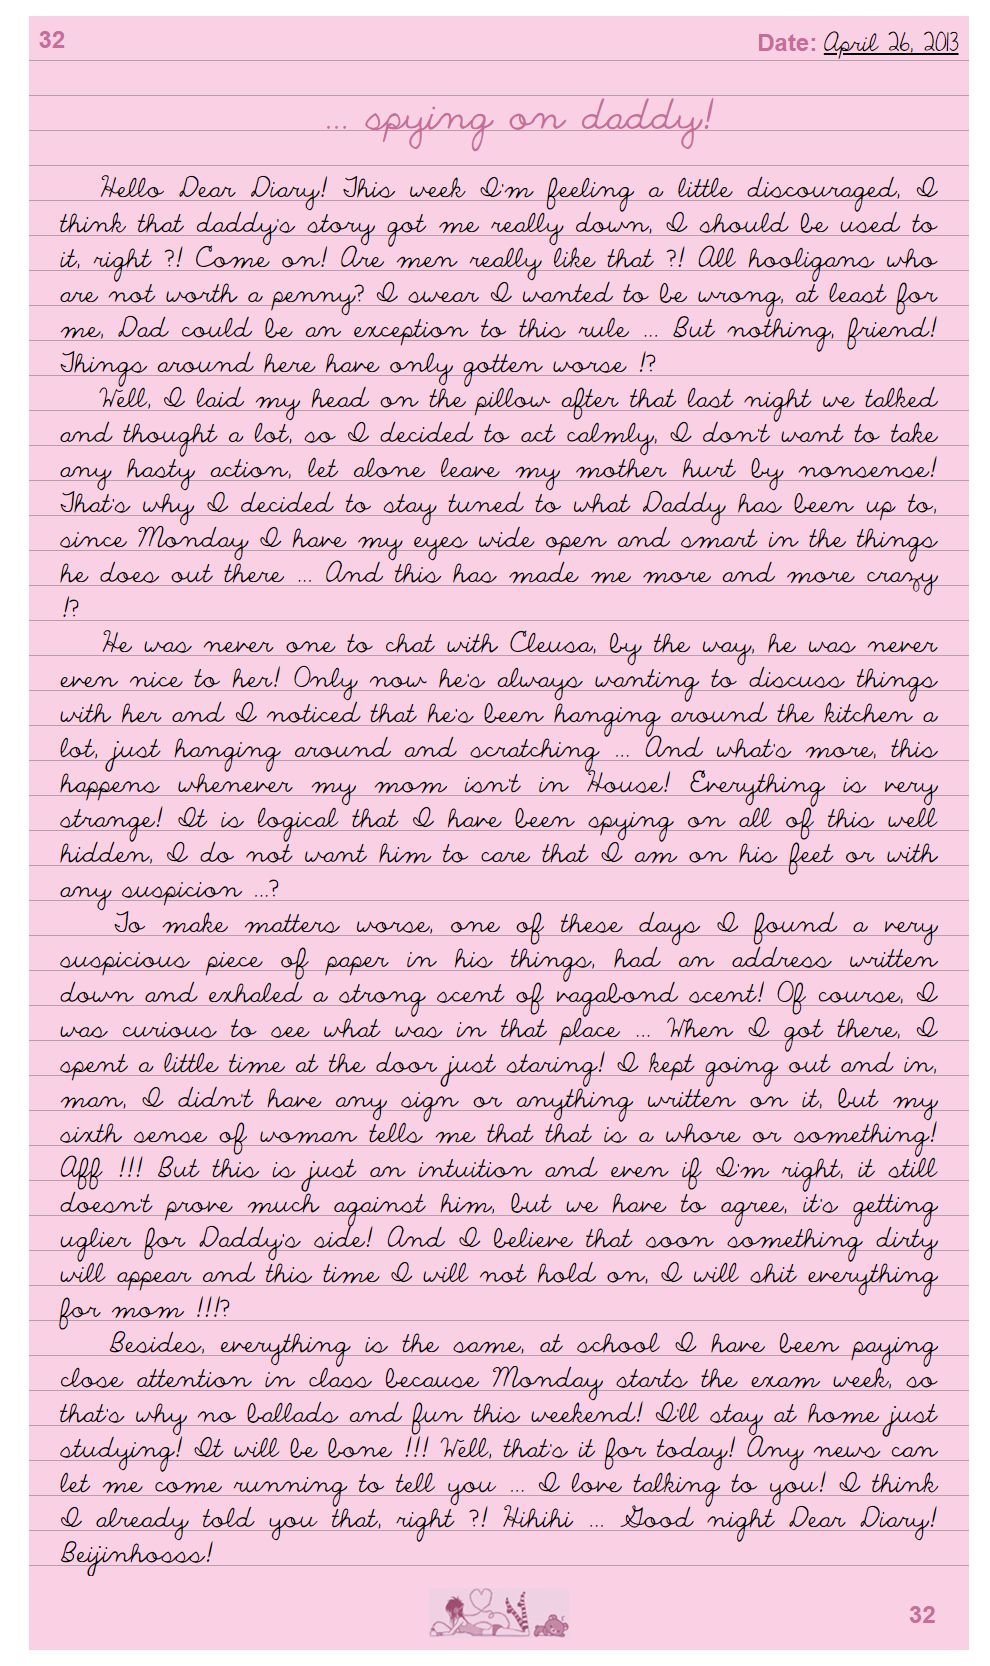 32
Date: April 26, 2013
... spying on daddy!
Hello Dear Diary! This week I'm feeling a little discouraged, I
think that daddy's story got me really down, I should be used to
it, right ?! Come on! Are men really like that ?! All hooligans who
are not worth a penny? I swear I wanted to be wrong, at least for
me, Dad could be an exception to this rule ... But nothing, friend!
Things around here have only gotten worse !?
Well, I laid my head on the pillow after that last night we talked
and thought a lot, so I decided to act calmly, I don't want to take
any hasty action, let alone leave my mother hurt by nonsense!
That's why I decided to stay tuned to what Daddy has been up to,
since Monday I have my eyes wide open and smart in the things
he does out there ... And this has made me more and more crazy
!?
He was never one to chat with Cleusa, by the way, he was never
even nice to her! Only now he's always wanting to discuss things
with her and I noticed that he's been hanging around the kitchen a
lot, just hanging around and scratching ... And what's more, this
happens whenever my mom isn't in House! Everything is very
strange! It is logical that I have been spying on all of this well
hidden, I do not want him to care that I am on his feet or with
any suspicion ...?
To make matters worse, one of these days I found a very
suspicious piece of paper in his things, had an address written
down and exhaled a strong scent of vagabond scent! Of course, I
was curious to see what was in that place ... When I got there, I
spent a little time at the door just staring! I kept going out and in,
man, I didn't have any sign or anything written on it, but my
sixth sense of woman tells me that that is a whore or something!
Aff !!! But this is just an intuition and even if I'm right, it still
doesn't prove much against him, but we have to agree, it's getting
uglier for Daddy's side! And I believe that soon something dirty
will appear and this time I will not hold on, I will shit everything
for mom !!!?
Besides, everything is the same, at school I have been paying
close attention in class because Monday starts the exam week, so
that's why no ballads and fun this weekend! I'll stay at home just
studying! It will be bone !!! Well, that's it for today! Any news can
let me come running to tell you ... I love talking to you! I think
I already told you that, right ?! Hihihi ... Good night Dear Diary!
Beijinhosss!
32